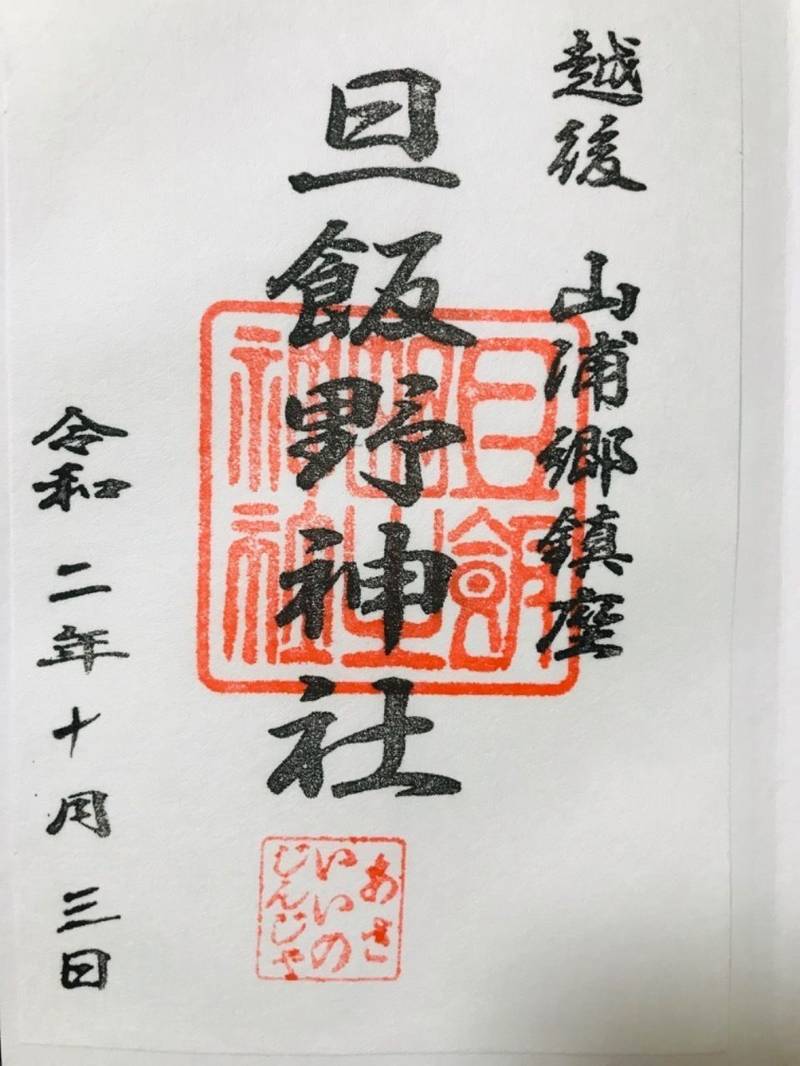 越後 山浦郷鎮座
旦飯野神社
令和二年十月三日
旦飯野神社
あさ
いいの
じんじゃ